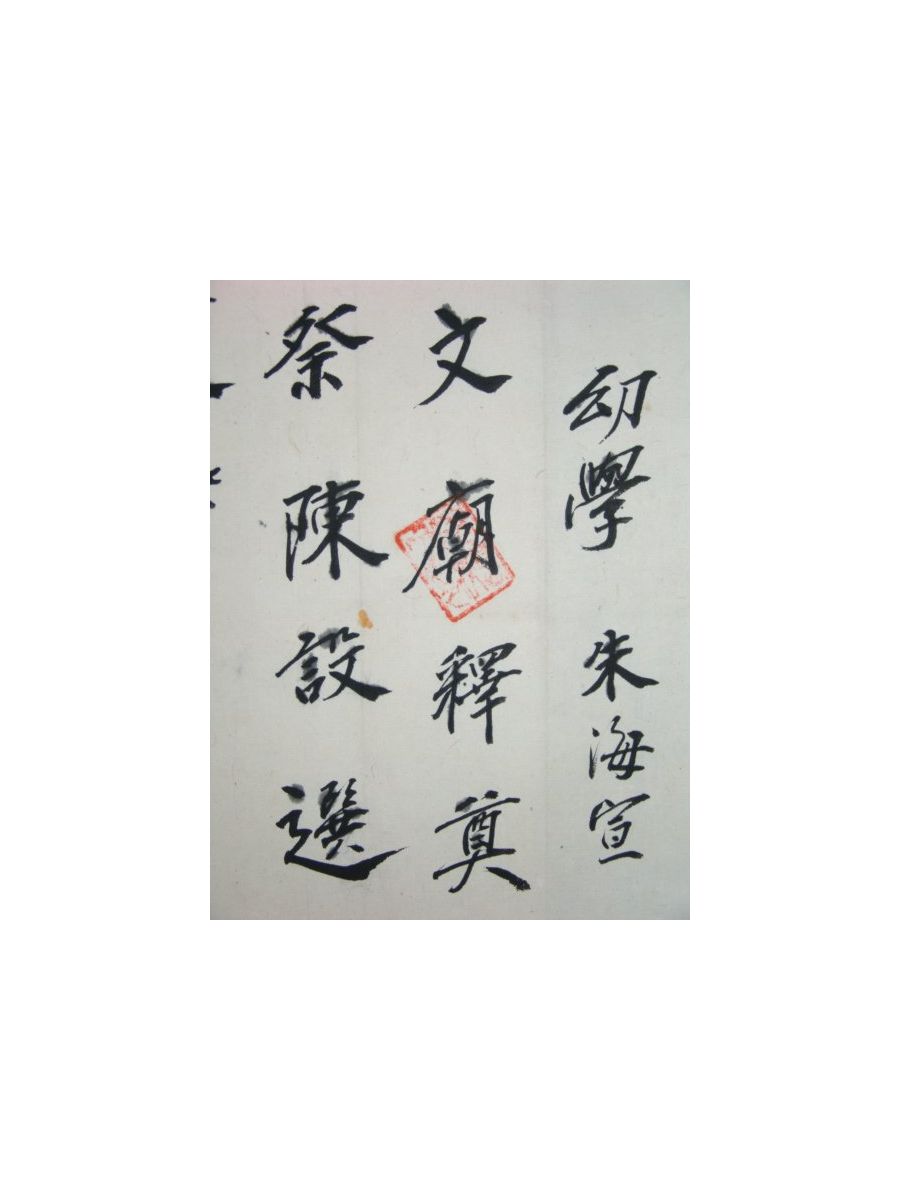 幼學 朱海宣
文廟釋奠
祭陳設選